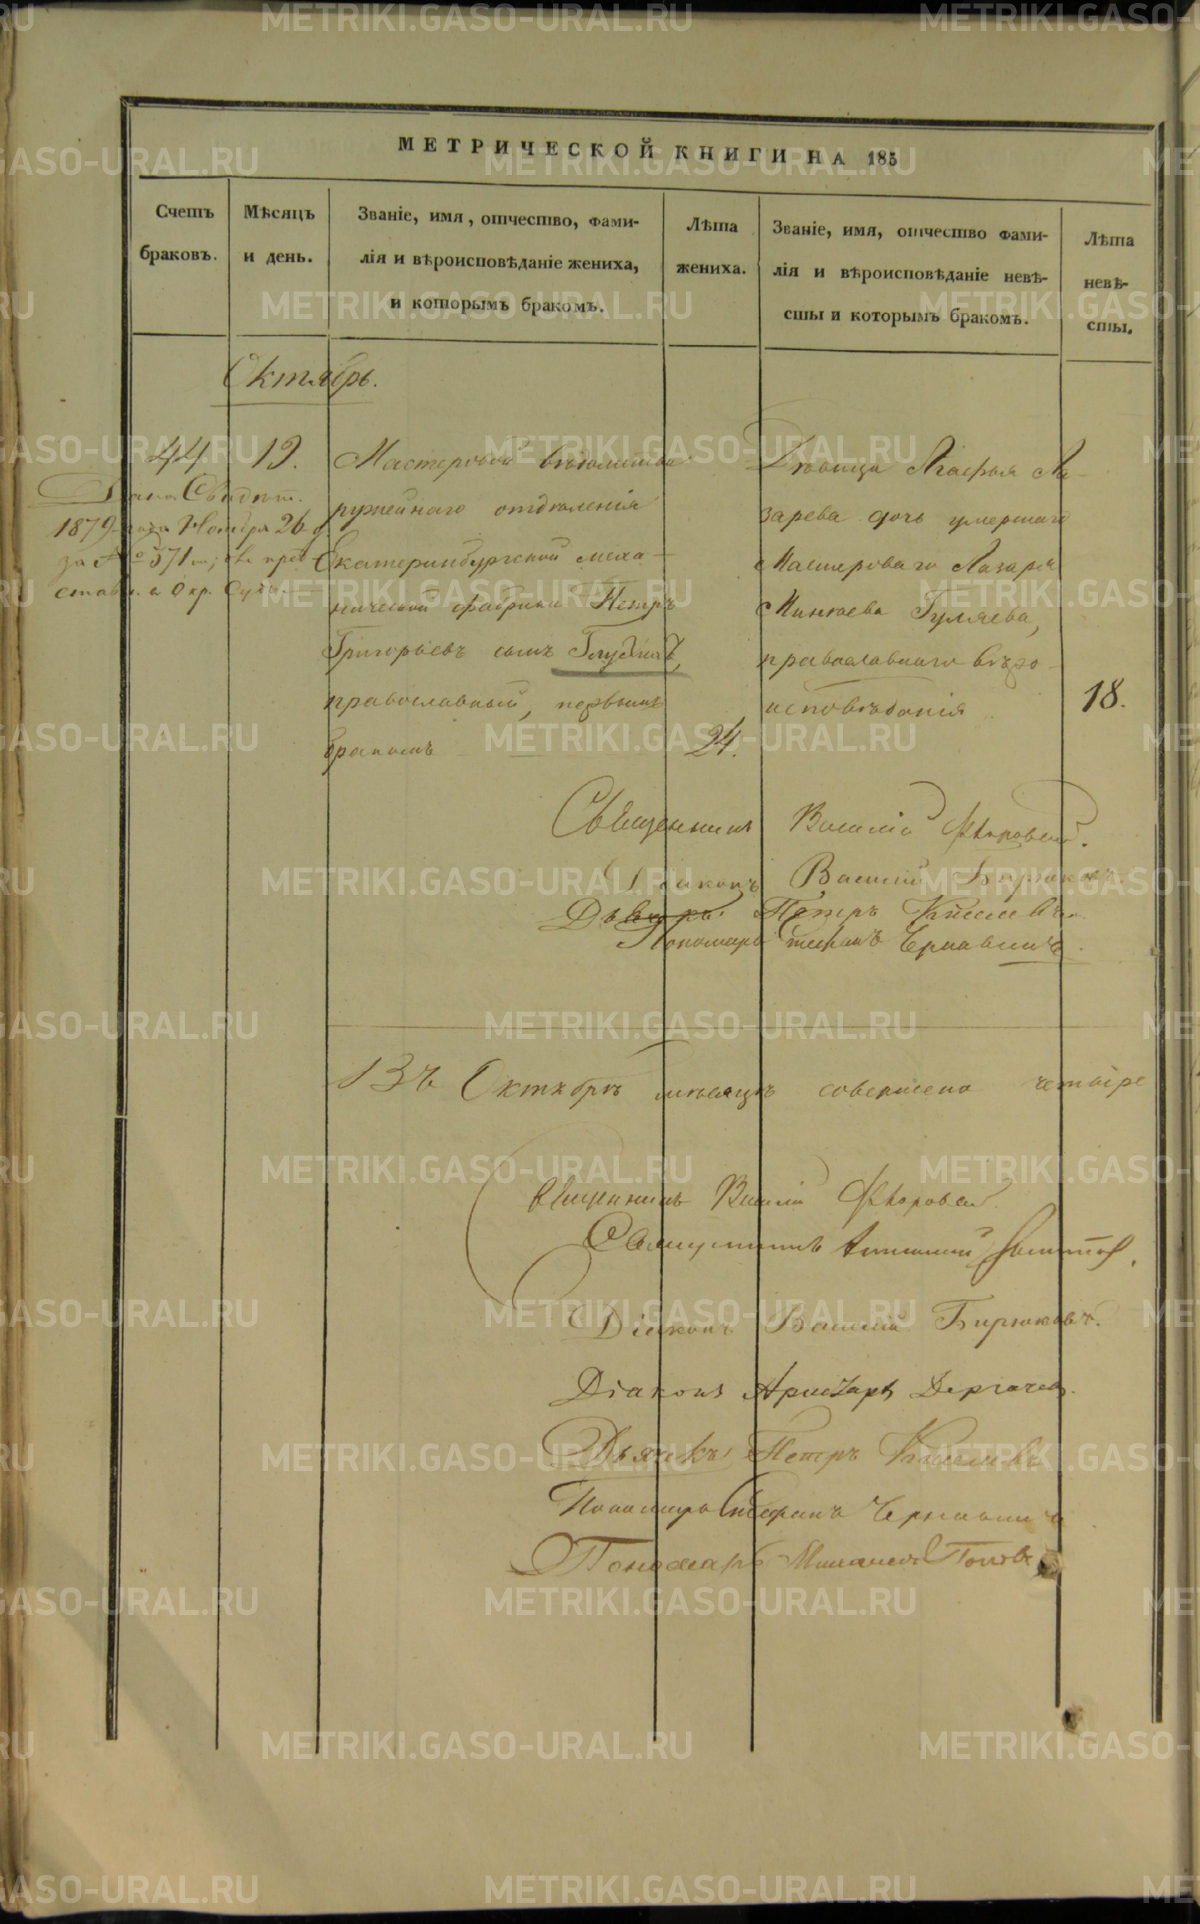 МЕТРИЧЕСКОЙ КНИГИ НА 185
Счетъ браковъ.
Мѣсяцъ и день.
Званіе, имя, отчество, фами-
лія и вѣроисповѣданіе жениха,
и которымъ бракомъ.
Лѣта жениха.
Званіе, имя, отчество фами-
лія и вѣроисповѣданіе невѣ-
сты и которымъ бракомъ.
Лѣта невѣ-
сты.
Октябрь.
44
19.
Дана Свидѣт.
1879 года Ноября 26 д
за № 571
Мастеровой вѣдомства
ружейнаго отдѣленія
Екатеринбургской меха-
нической фабрики Петръ
Григорьевъ сынъ
православный, первымъ
бракомъ
24.
Дѣвица Агафья Ла-
зарева дочь умершаго
Мастероваго Лазаря
Минѣева Гуляева,
православнаго вѣро-
исповѣданія
18.
Священникъ Василій Флоровскій.
Діаконъ Василій Бирюковъ.
Петръ Киселевъ
Пономарь Стефанъ Чернавинъ.
Въ Октябрѣ мѣсяцѣ совершено четыре
Священникъ Василій Флоровскій
Священникъ
Діаконъ Василій Бирюковъ.
Діаконъ Аристархъ Дергачевъ.
Дьячекъ Петръ Киселевъ
Пономарь Стефанъ Чернавинъ
Пономарь Поповъ
METRIKI.GASO-URAL.RU